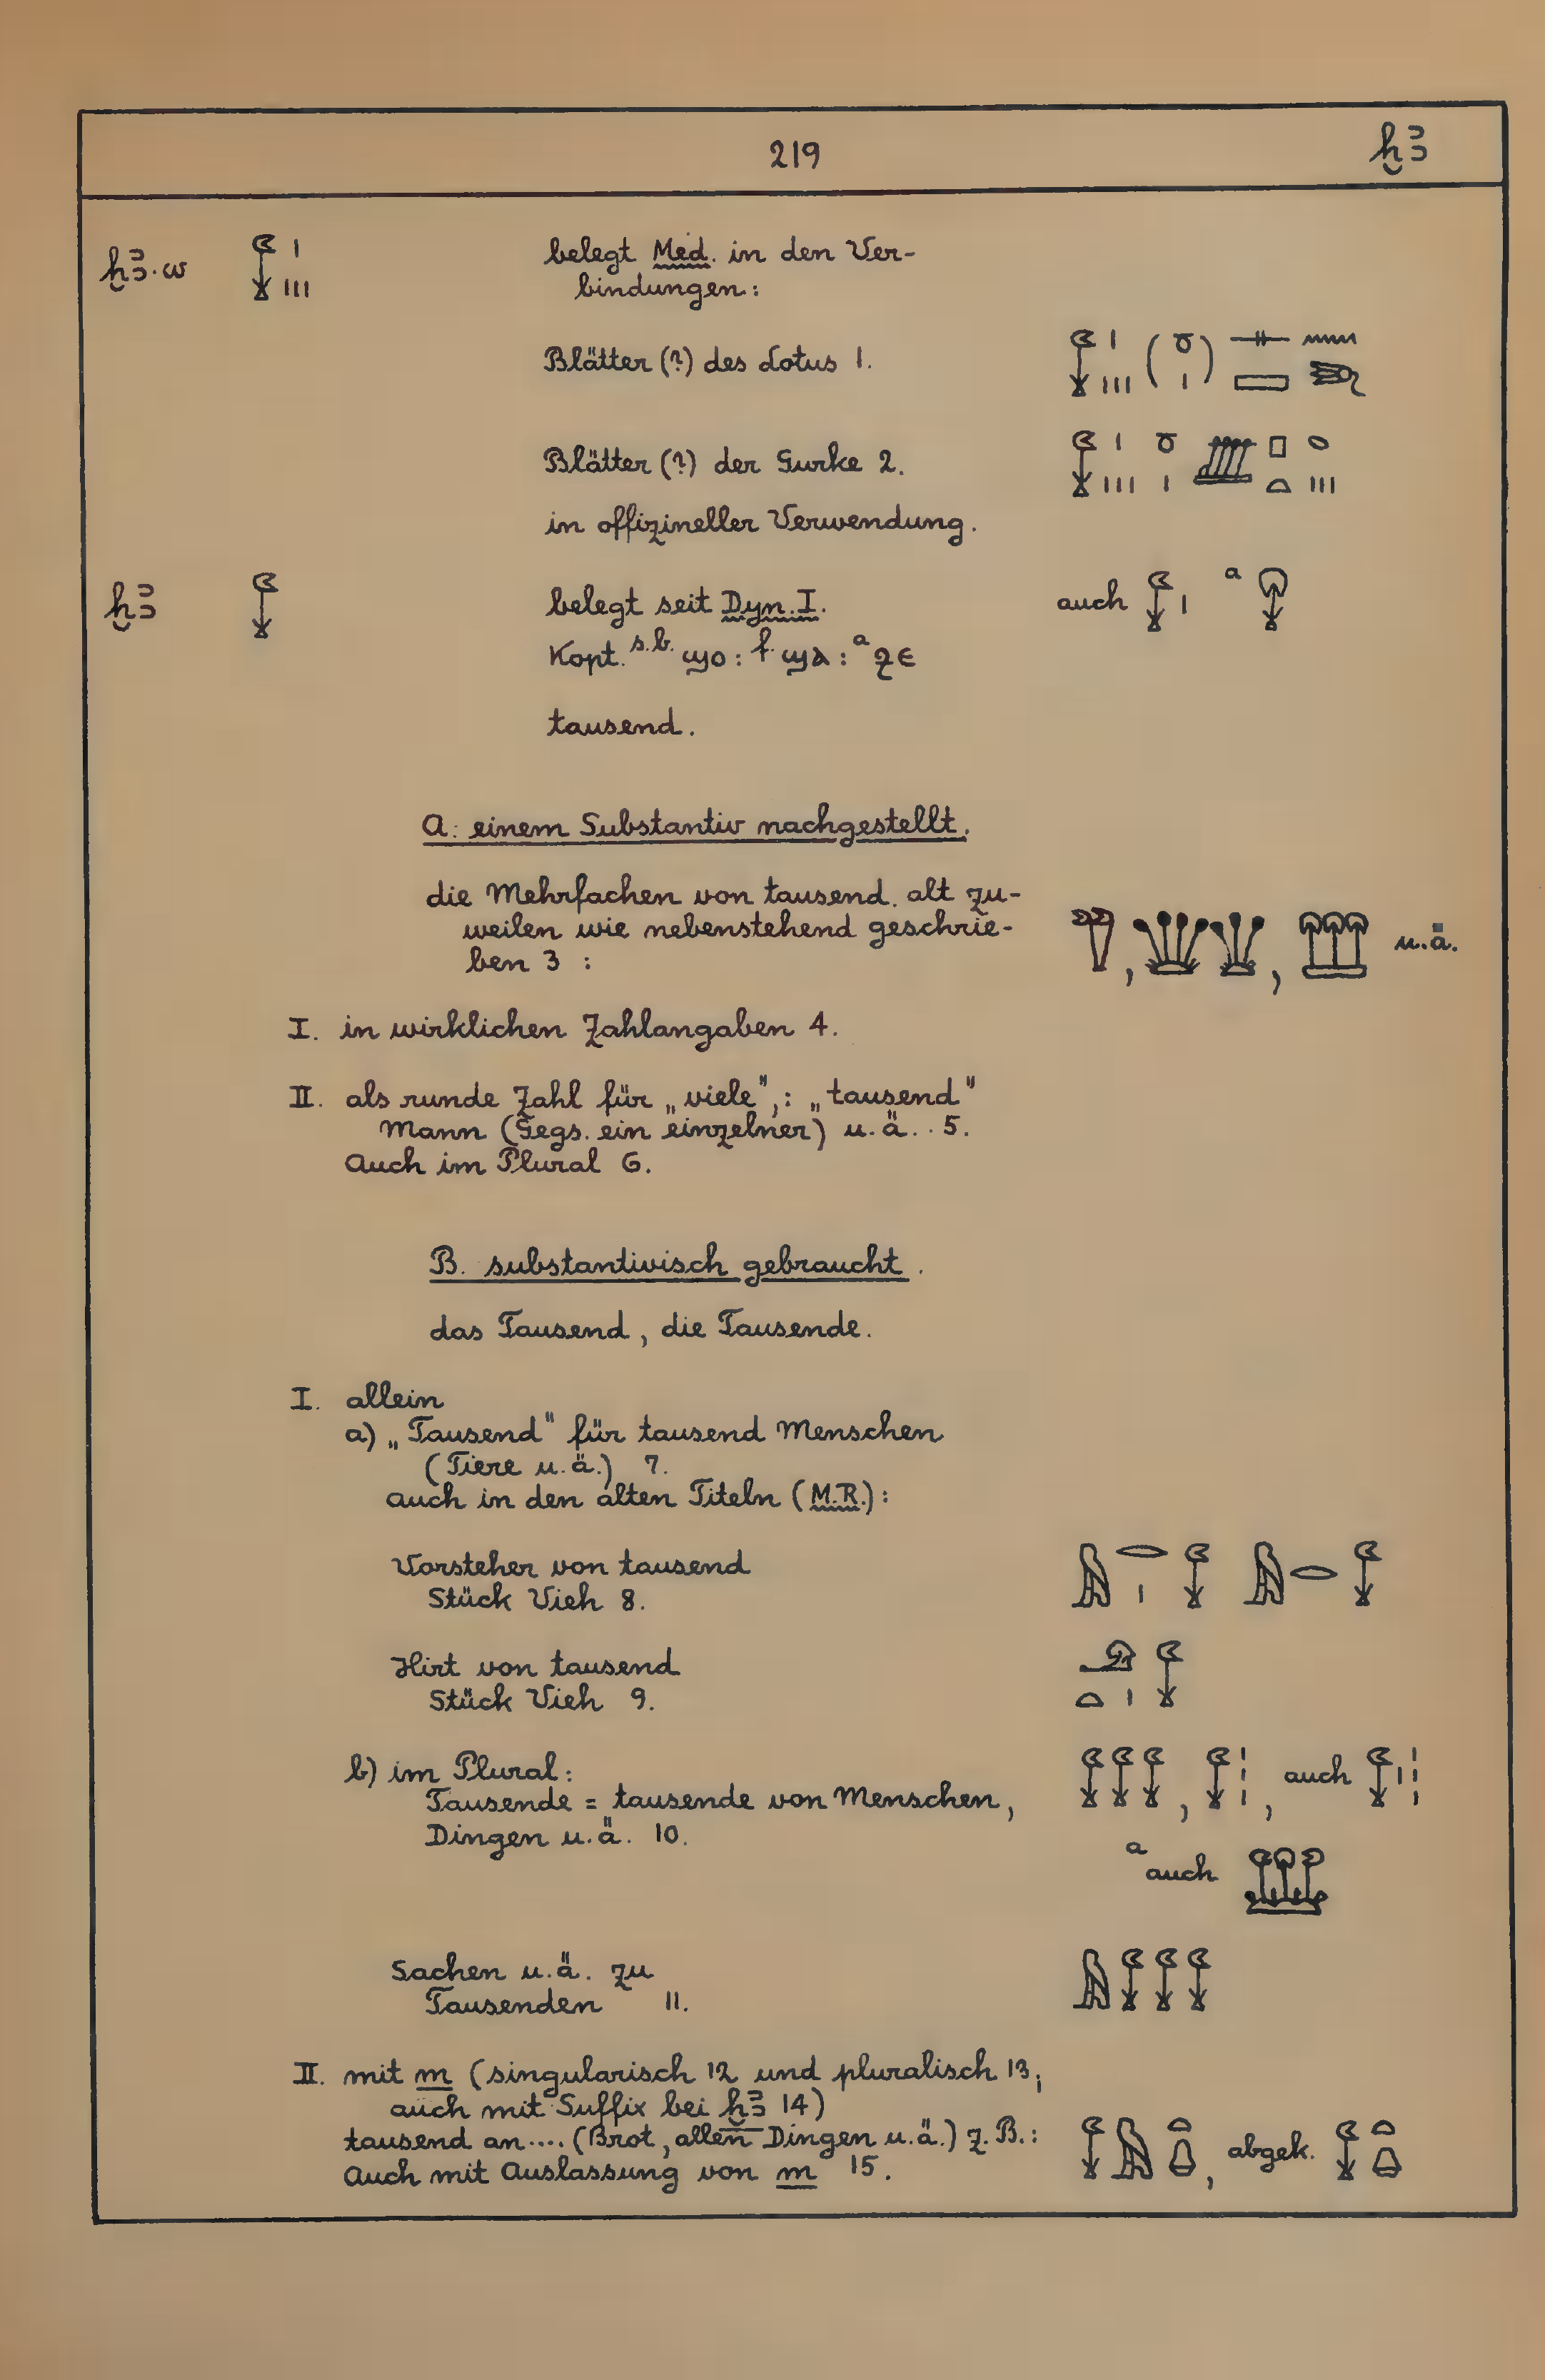 219 ḫꜣ
ḫꜣ·w 𓆼𓏤𓏥 belegt Med. in den Ver-
bindungen:
Blätter (?) des Lotus 1. 𓆼𓏤𓏥 (𓈒
Blätter (?) der Gurke 2.
in offizineller Verwendung.
ḫꜣ 𓆼 belegt seit Dyn. I. auch 𓆼𓏤 a
Kopt. s.b. ϣⲟ : f. ϣⲁ : a ϩⲉ
tausend.
A. einem Substantiv nachgestellt.
die Mehrfachen von tausend. alt zu-
weilen wie nebenstehend geschrie-
ben 3 : , , u.ä.
I. in wirklichen Zahlangaben 4.
II. als runde Zahl für „viele", : „tausend"
Mann (Gegs. ein einzelner) u.ä. . 5.
Auch im Plural 6.
B. substantivisch gebraucht.
das Tausend, die Tausende.
I. allein
a) „Tausend" für tausend Menschen
(Tiere u.ä.) 7.
auch in den alten Titeln (M.R.):
Vorsteher von tausend 𓅓𓂋𓏤𓆼 𓅓𓂋𓆼
Stück Vieh 8.
Hirt von tausend
Stück Vieh 9.
b) im Plural:
Tausende = tausende von Menschen, 𓆼𓆼𓆼, 𓆼𓏪, auch 𓆼𓏤𓏪
Dingen u.ä. 10.
a auch
Sachen u.ä. zu 𓅓𓆼𓆼𓆼
Tausenden 11.
II. mit m (singularisch 12 und pluralisch 13;
auch mit Suffix bei ḫꜣ 14)
tausend an.... (Brot, allen Dingen u.ä.) z.B.: 𓆼𓅓𓏏, abgek. 𓆼𓏏
Auch mit Auslassung von m 15.